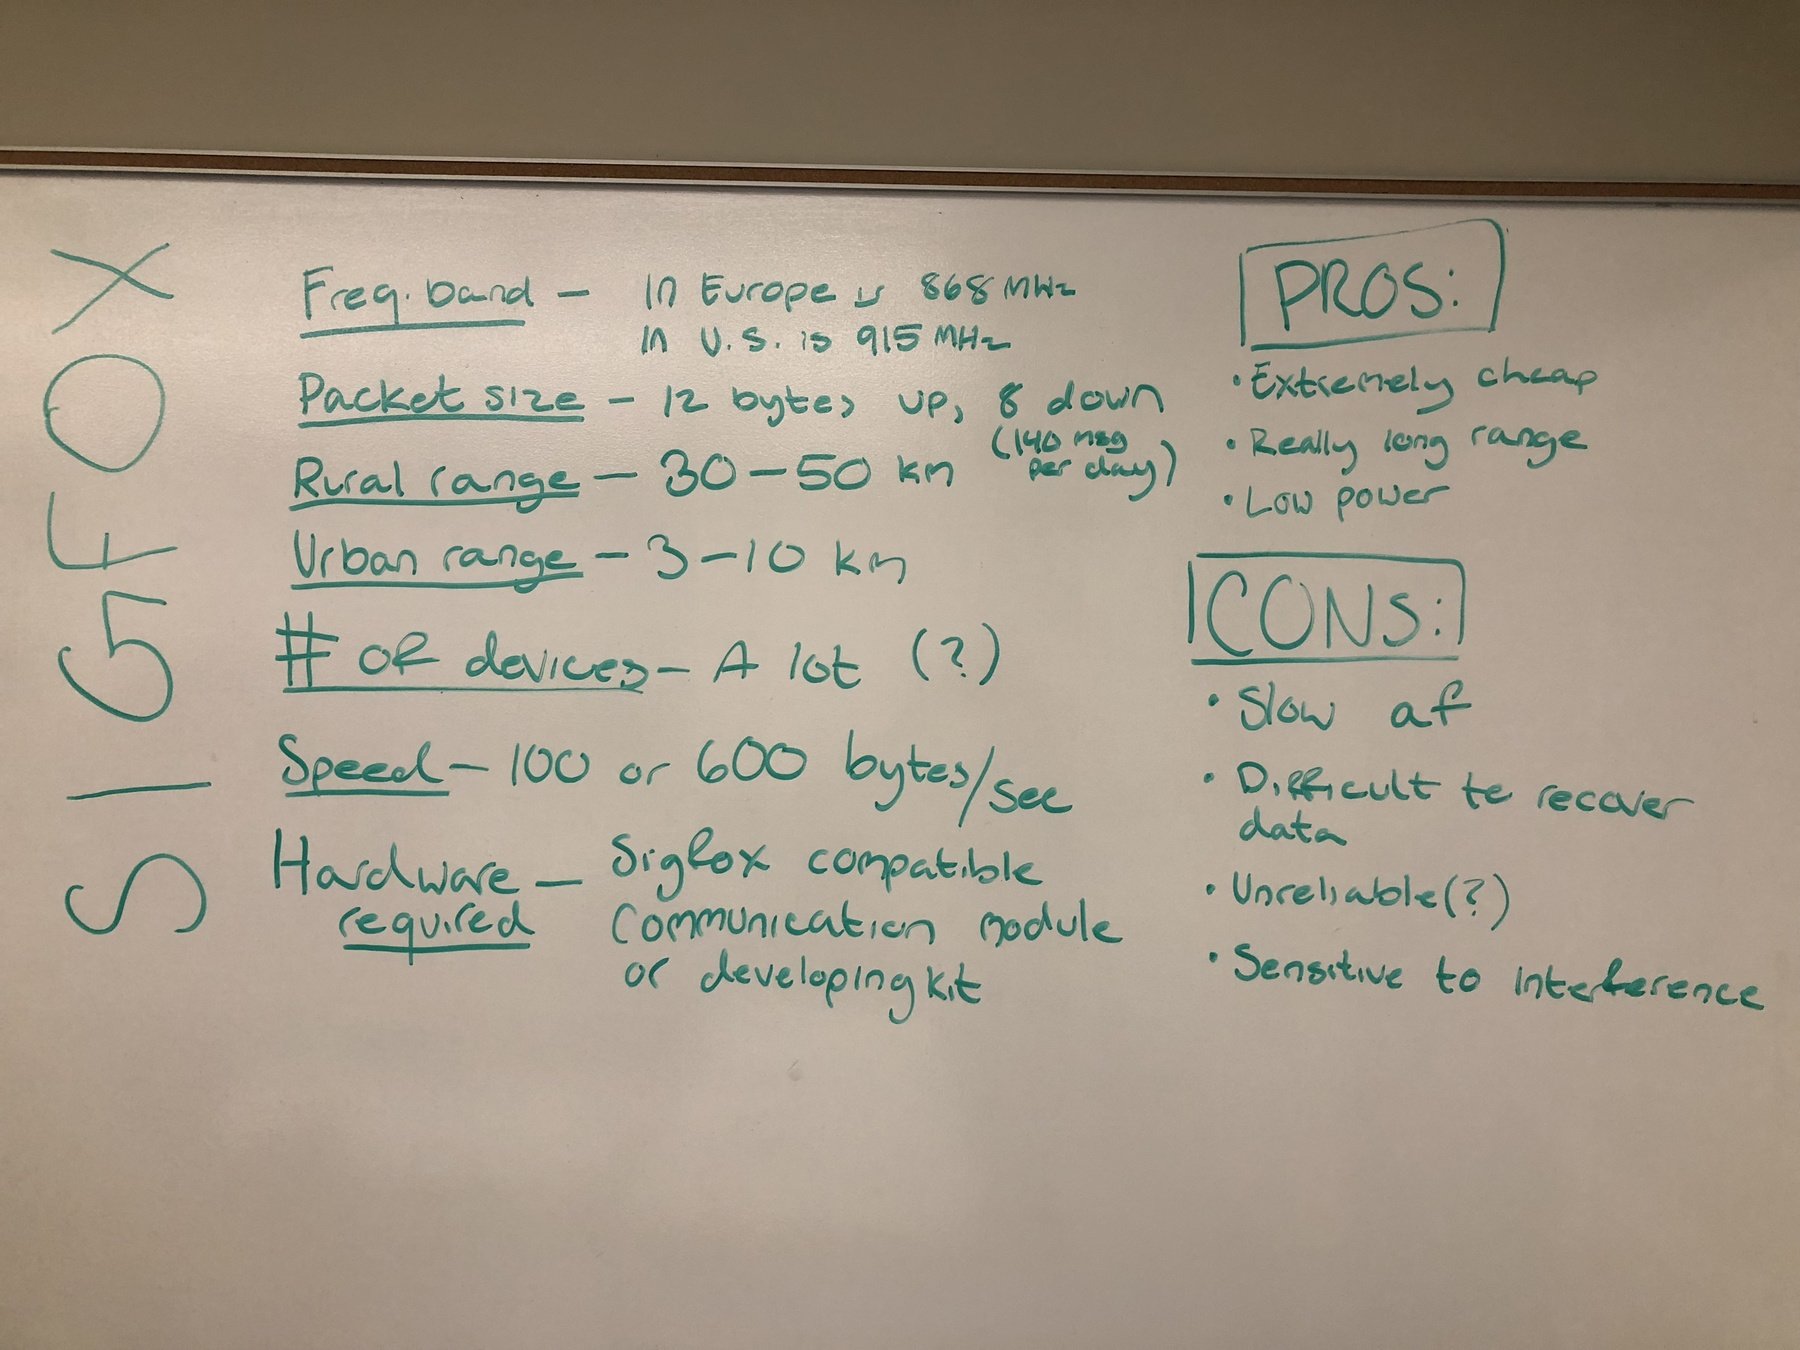 SIGFOX
Freq. band - In Europe is 868 MHz
In U.S. is 915 MHz
Packet size - 12 bytes up, 8 down
(140 msg
per day)
Rural range - 30-50 km
Urban range - 3-10 km
# of devices - A lot (?)
Speed - 100 or 600 bytes/sec
Hardware required - Sigfox compatible
communication module
or developing kit
PROS:
• Extremely cheap
• Really long range
• Low power
CONS:
• Slow af
• Difficult to recover
data
• Unreliable (?)
• Sensitive to interference